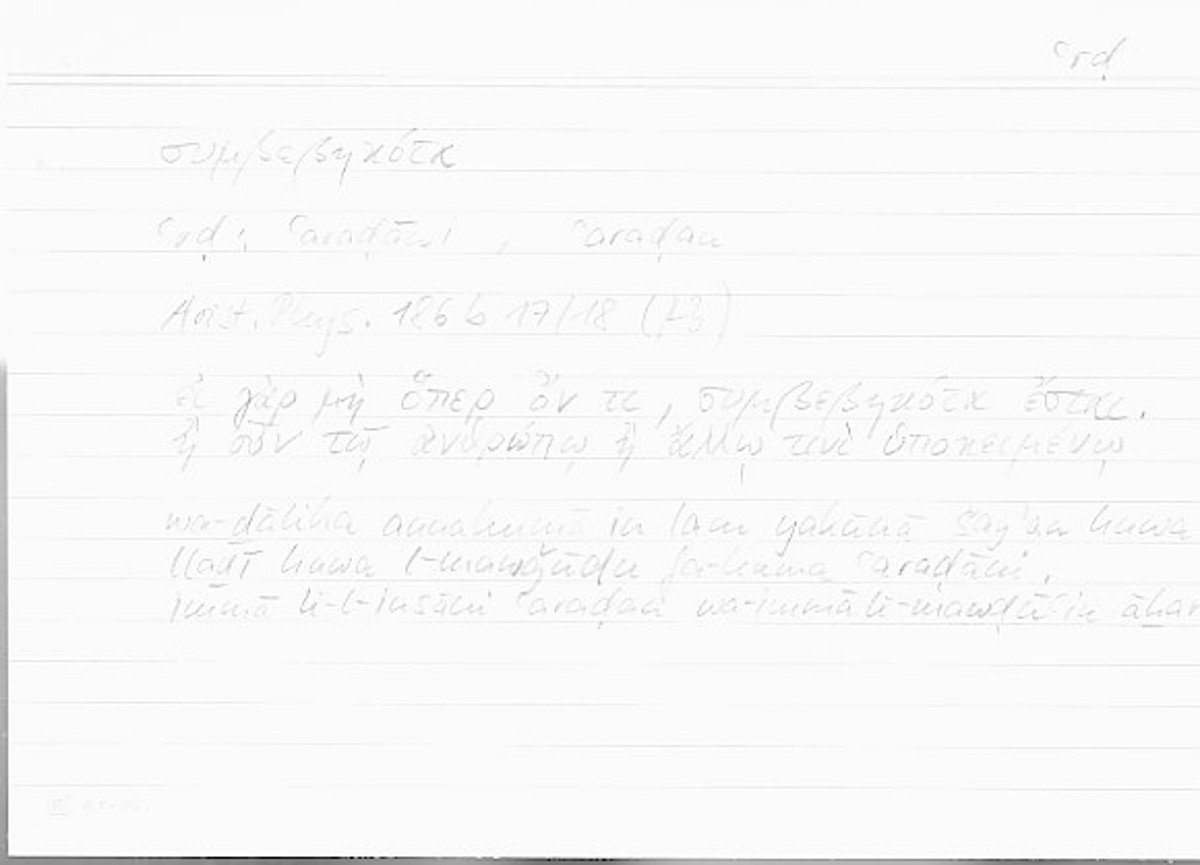 ʿrḍ
συμβεβηκότα
ʿrḍ: ʿaraḍāni, ʿaraḍan
Arist. Phys. 186 b 17/18
εἰ γὰρ μὴ ὅπερ ὄν τι, συμβεβηκότα ἔσται.
ἢ οὖν τῷ ἀνθρώπῳ ἢ ἄλλῳ τινὶ ὑποκειμένῳ
wa-ḏālika annahumā in lam yakūnā šayʾan huwa
llaḏī huwa l-mawǧūdu fa-humā ʿaraḍāni,
immā li-l-insāni ʿaraḍan wa-immā li-mawḍūʿin āḫar